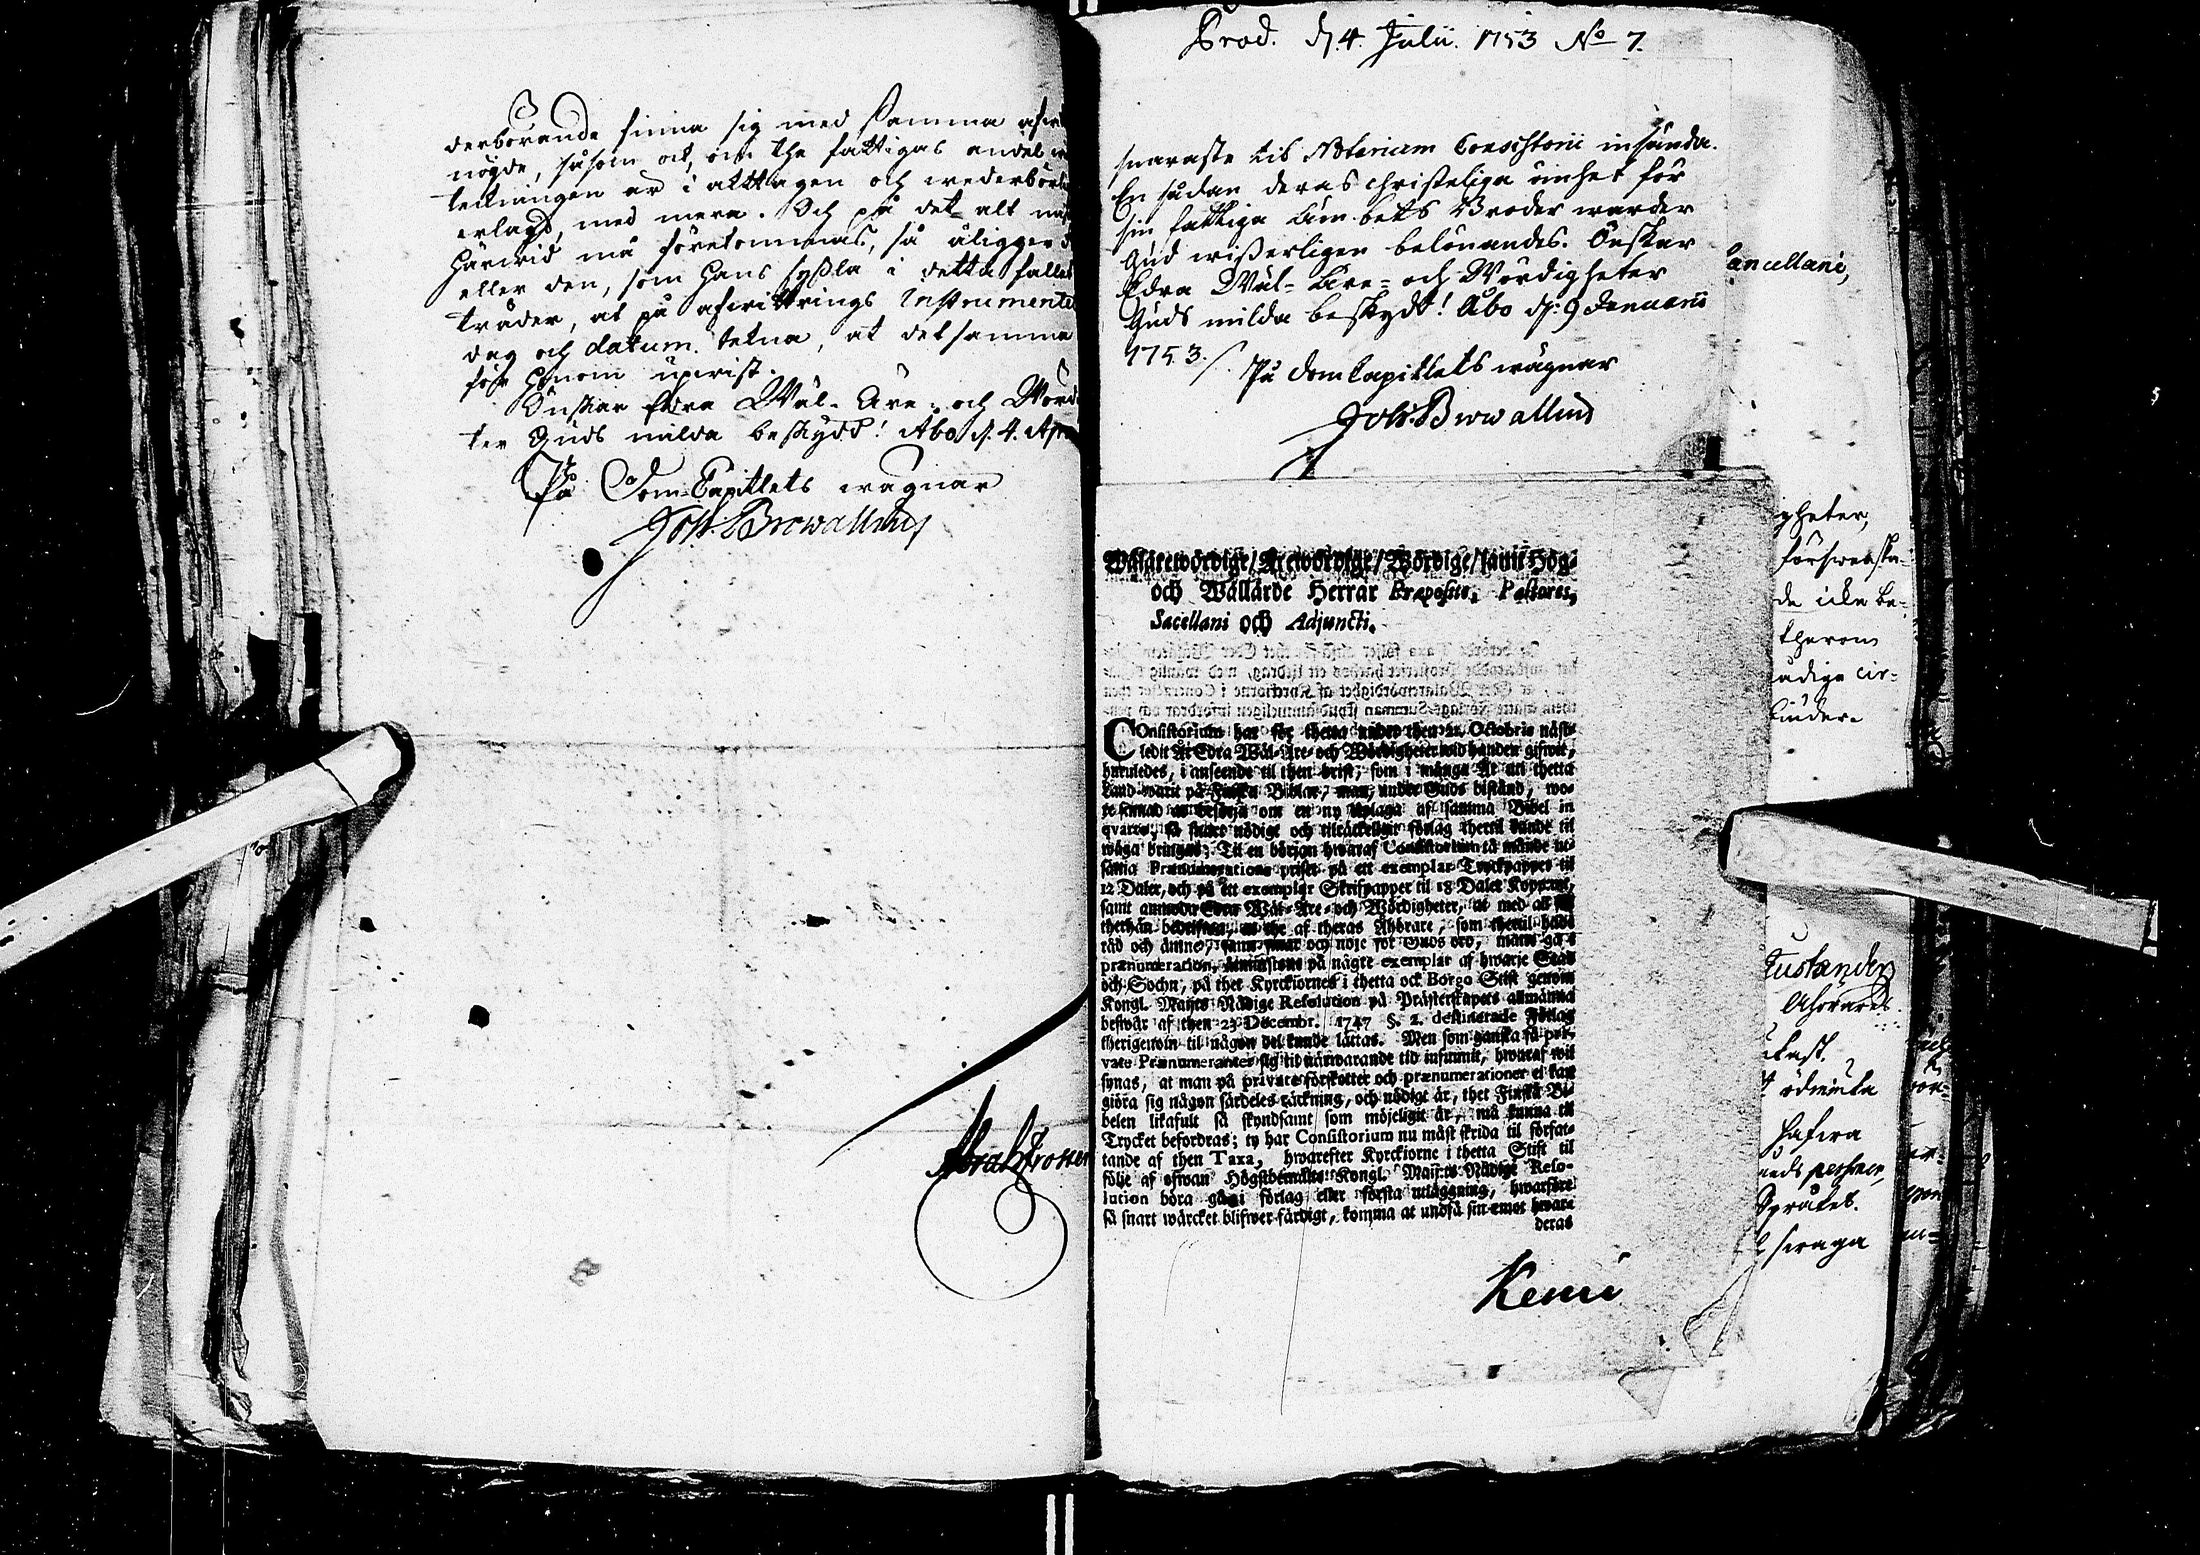 derborande finna sig med samma afwi
nögde, såsom ock, om the fattigas andel
teckningen är i akttagen och wederbör
erlagd, med mera. Och på det alt
härwid må förekommas, så åligger
eller den, som hans syßla i detta fallet
träder, at på afwittrings Instrumentet
dag och datum tekna, at detsamma
för honom upwist.
Önskar Edra Wäl- Äre- och Wörd
ter Guds milda beskydd! Åbo d. 4. Apr
På Dom-Capitlets wägnar
Joh. Browallius
Prod. d. 4. Julii. 1753 No 7.
snaraste til Notarium Consistorii insända.
En sådan deras christeliga ömhet för
sin fattiga Broder warder
Gud wißerligen belönandes. Önskar
Edra Wäl- Äre- och Wördigheter
Guds milda beskydd! Åbo d. 9 Januarii
1753.
På Domcapitlets wägnar
Joh. Browallius
Wälärewördige/ Ärewördige/ Wördige/ samt Hög-
och Wällärde Herrar Præpositi, Pastores,
Sacellani och Adjuncti.
COnsistorium har för thetta under then 21. Octobris näst-
ledit År Edra Wäl-Äre- och Wördigheter wid handen gifwit,
huruledes, i anseende til then brist, som i många År uti thetta
Land warit på Finska Biblar, man, under Guds bistånd, wo-
re sinnad at besörja om en ny uplaga af samma Bibel in
qvarto, så snart nödigt och tilräckeligit förlag thertil kunde til
wäga bringas; Til en början hwaraf Consistorium tå månde ut-
sättia Prænumerations priset på ett exemplar Tryckpapper til
12 Daler, och på ett exemplar Skrifpapper til 18 Daler Kopp:mt,
samt anmoda Edra Wäl-Äre- och Wördigheter, at med all flit
therhän bearbeta, at the af theras Åhörare, som thertil hade
råd och ämne, samt smak och nöje för Guds ord, måtte gå i
prænumeration, åtminstone på några exemplar af hwarje Stad
och Sochn, på thet Kyrckiornes i thetta ock Borgo Stift genom
Kongl. Maijts Nådige Resolution på Prästerskapets allmänna
beswär af then 23 Decembr. 1747 §. 2. destinerade Förlag
therigenom til någon del kunde lättas. Men som ganska få pri-
vate Prænumeranter sig til närwarande tid infunnit, hwaraf wil
synas, at man på private förskotter och prænumerationer ei kan
giöra sig någon särdeles räckning, och nödigt är, thet Finska Bi-
belen likafult så skyndsamt som möjeligit är, må kunna til
Trycket befordras; ty har Consistorium nu måst skrida til förfat-
tande af then Taxa, hwarefter Kyrckiorne i thetta Stift til
följe af ofwan Högstbemälte Kongl. Maij:ts Nådige Reso-
lution böra gå i förlag eller första utläggning, hwarföre
så snart wärcket blifwer färdigt, komma at undfå sin emot hwar-
deras
Kemi
Abrah Frosten
ancellani,
gheter,
försweska-
de icke be-
therom
ådige cir-
under-
tustander
Åhörarel
ukast.
ödmiuka
hafwa
person
Språket.
swaga